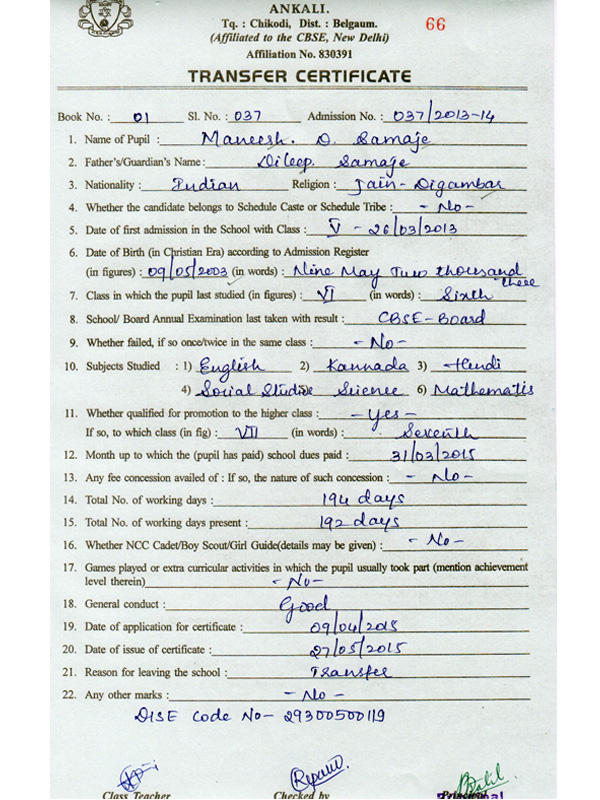 ANKALI.
Tq. : Chikodi, Dist. : Belgaum.
66
(Affiliated to the CBSE, New Delhi)
Affiliation No. 830391
TRANSFER CERTIFICATE
Book No. : 01 Sl. No. : 037 Admission No. : 037/2013-14
1. Name of Pupil : Maneesh. D. Samaje
2. Father's/Guardian's Name : Dileep. Samaje
3. Nationality : Indian Religion : Jain - Digambar
4. Whether the candidate belongs to Schedule Caste or Schedule Tribe : - No -
5. Date of first admission in the School with Class : V - 26/03/2013
6. Date of Birth (in Christian Era) according to Admission Register
(in figures) : 09/05/2003 (in words) : Nine May Two thousand three
7. Class in which the pupil last studied (in figures) : VI (in words) : Sixth
8. School/ Board Annual Examination last taken with result : CBSE-Board
9. Whether failed, if so once/twice in the same class : - No -
10. Subjects Studied : 1) English 2) Kannada 3) Hindi
4) Social Studies Science 6) Mathematis
11. Whether qualified for promotion to the higher class : - Yes -
If so, to which class (in fig) : VII (in words) : Seventh
12. Month up to which the (pupil has paid) school dues paid : 31/03/2015
13. Any fee concession availed of : If so, the nature of such concession : - No -
14. Total No. of working days : 194 days
15. Total No. of working days present : 192 days
16. Whether NCC Cadet/Boy Scout/Girl Guide(details may be given) : - No -
17. Games played or extra curricular activities in which the pupil usually took part (mention achievement
level therein) - No -
18. General conduct : Good
19. Date of application for certificate : 09/04/2015
20. Date of issue of certificate : 27/05/2015
21. Reason for leaving the school : Transfer
22. Any other marks : - No -
DISE Code No- 29300500119
Class Teacher Checked by Principal